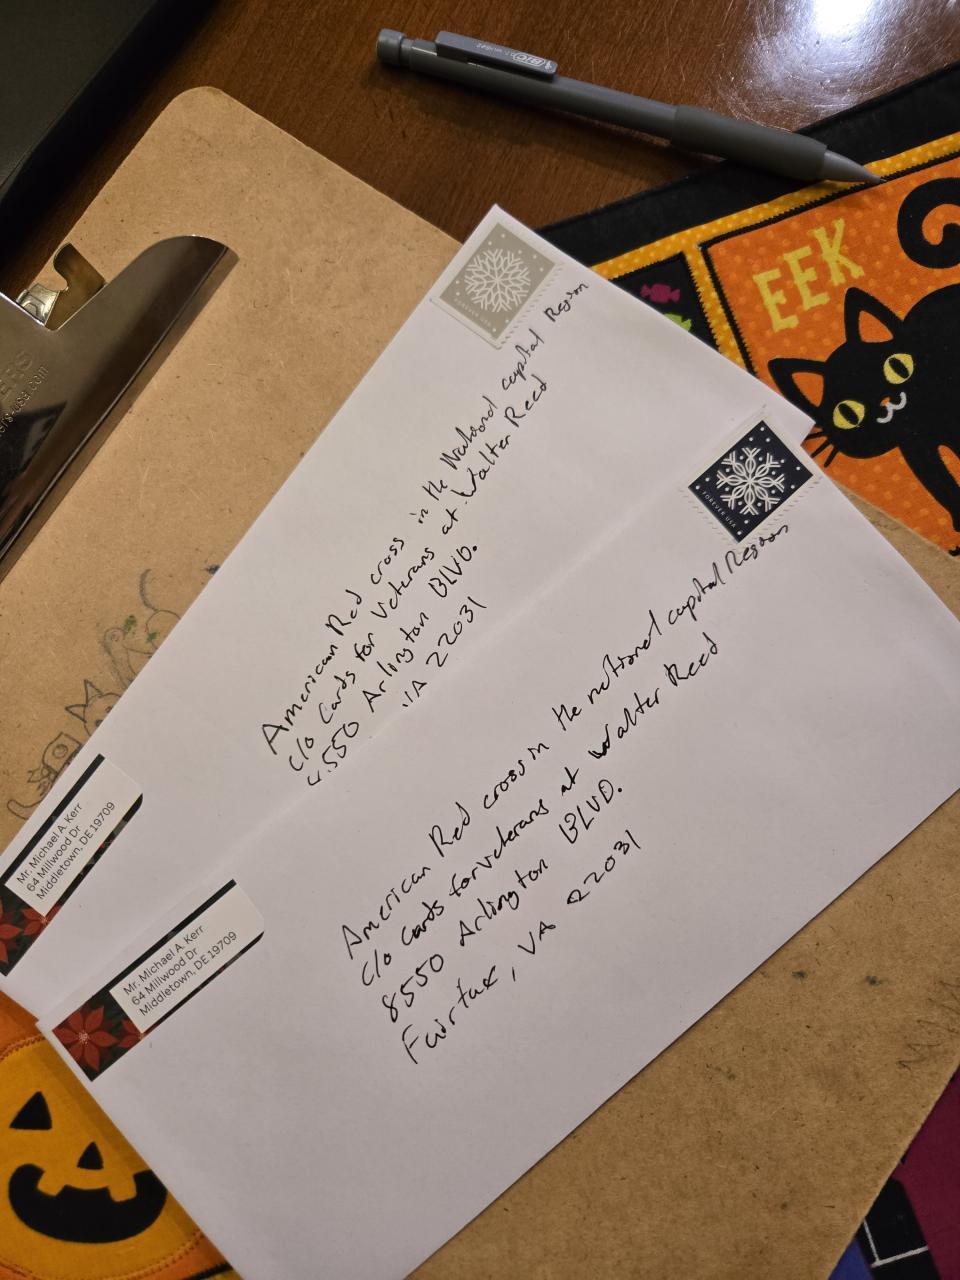 BIC
EEK
FOREVER USA
American Red cross in the National capital Region
c/o Cards for Veterans at Walter Reed
550 Arlington BLVD.
VA 22031
Mr. Michael A. Kerr
64 Millwood Dr
Middletown, DE 19709
FOREVER USA
American Red cross in the national capital Region
c/o cards for veterans at Walter Reed
8550 Arlington BLVD.
Fairfax, VA 22031
Mr. Michael A. Kerr
64 Millwood Dr
Middletown, DE 19709